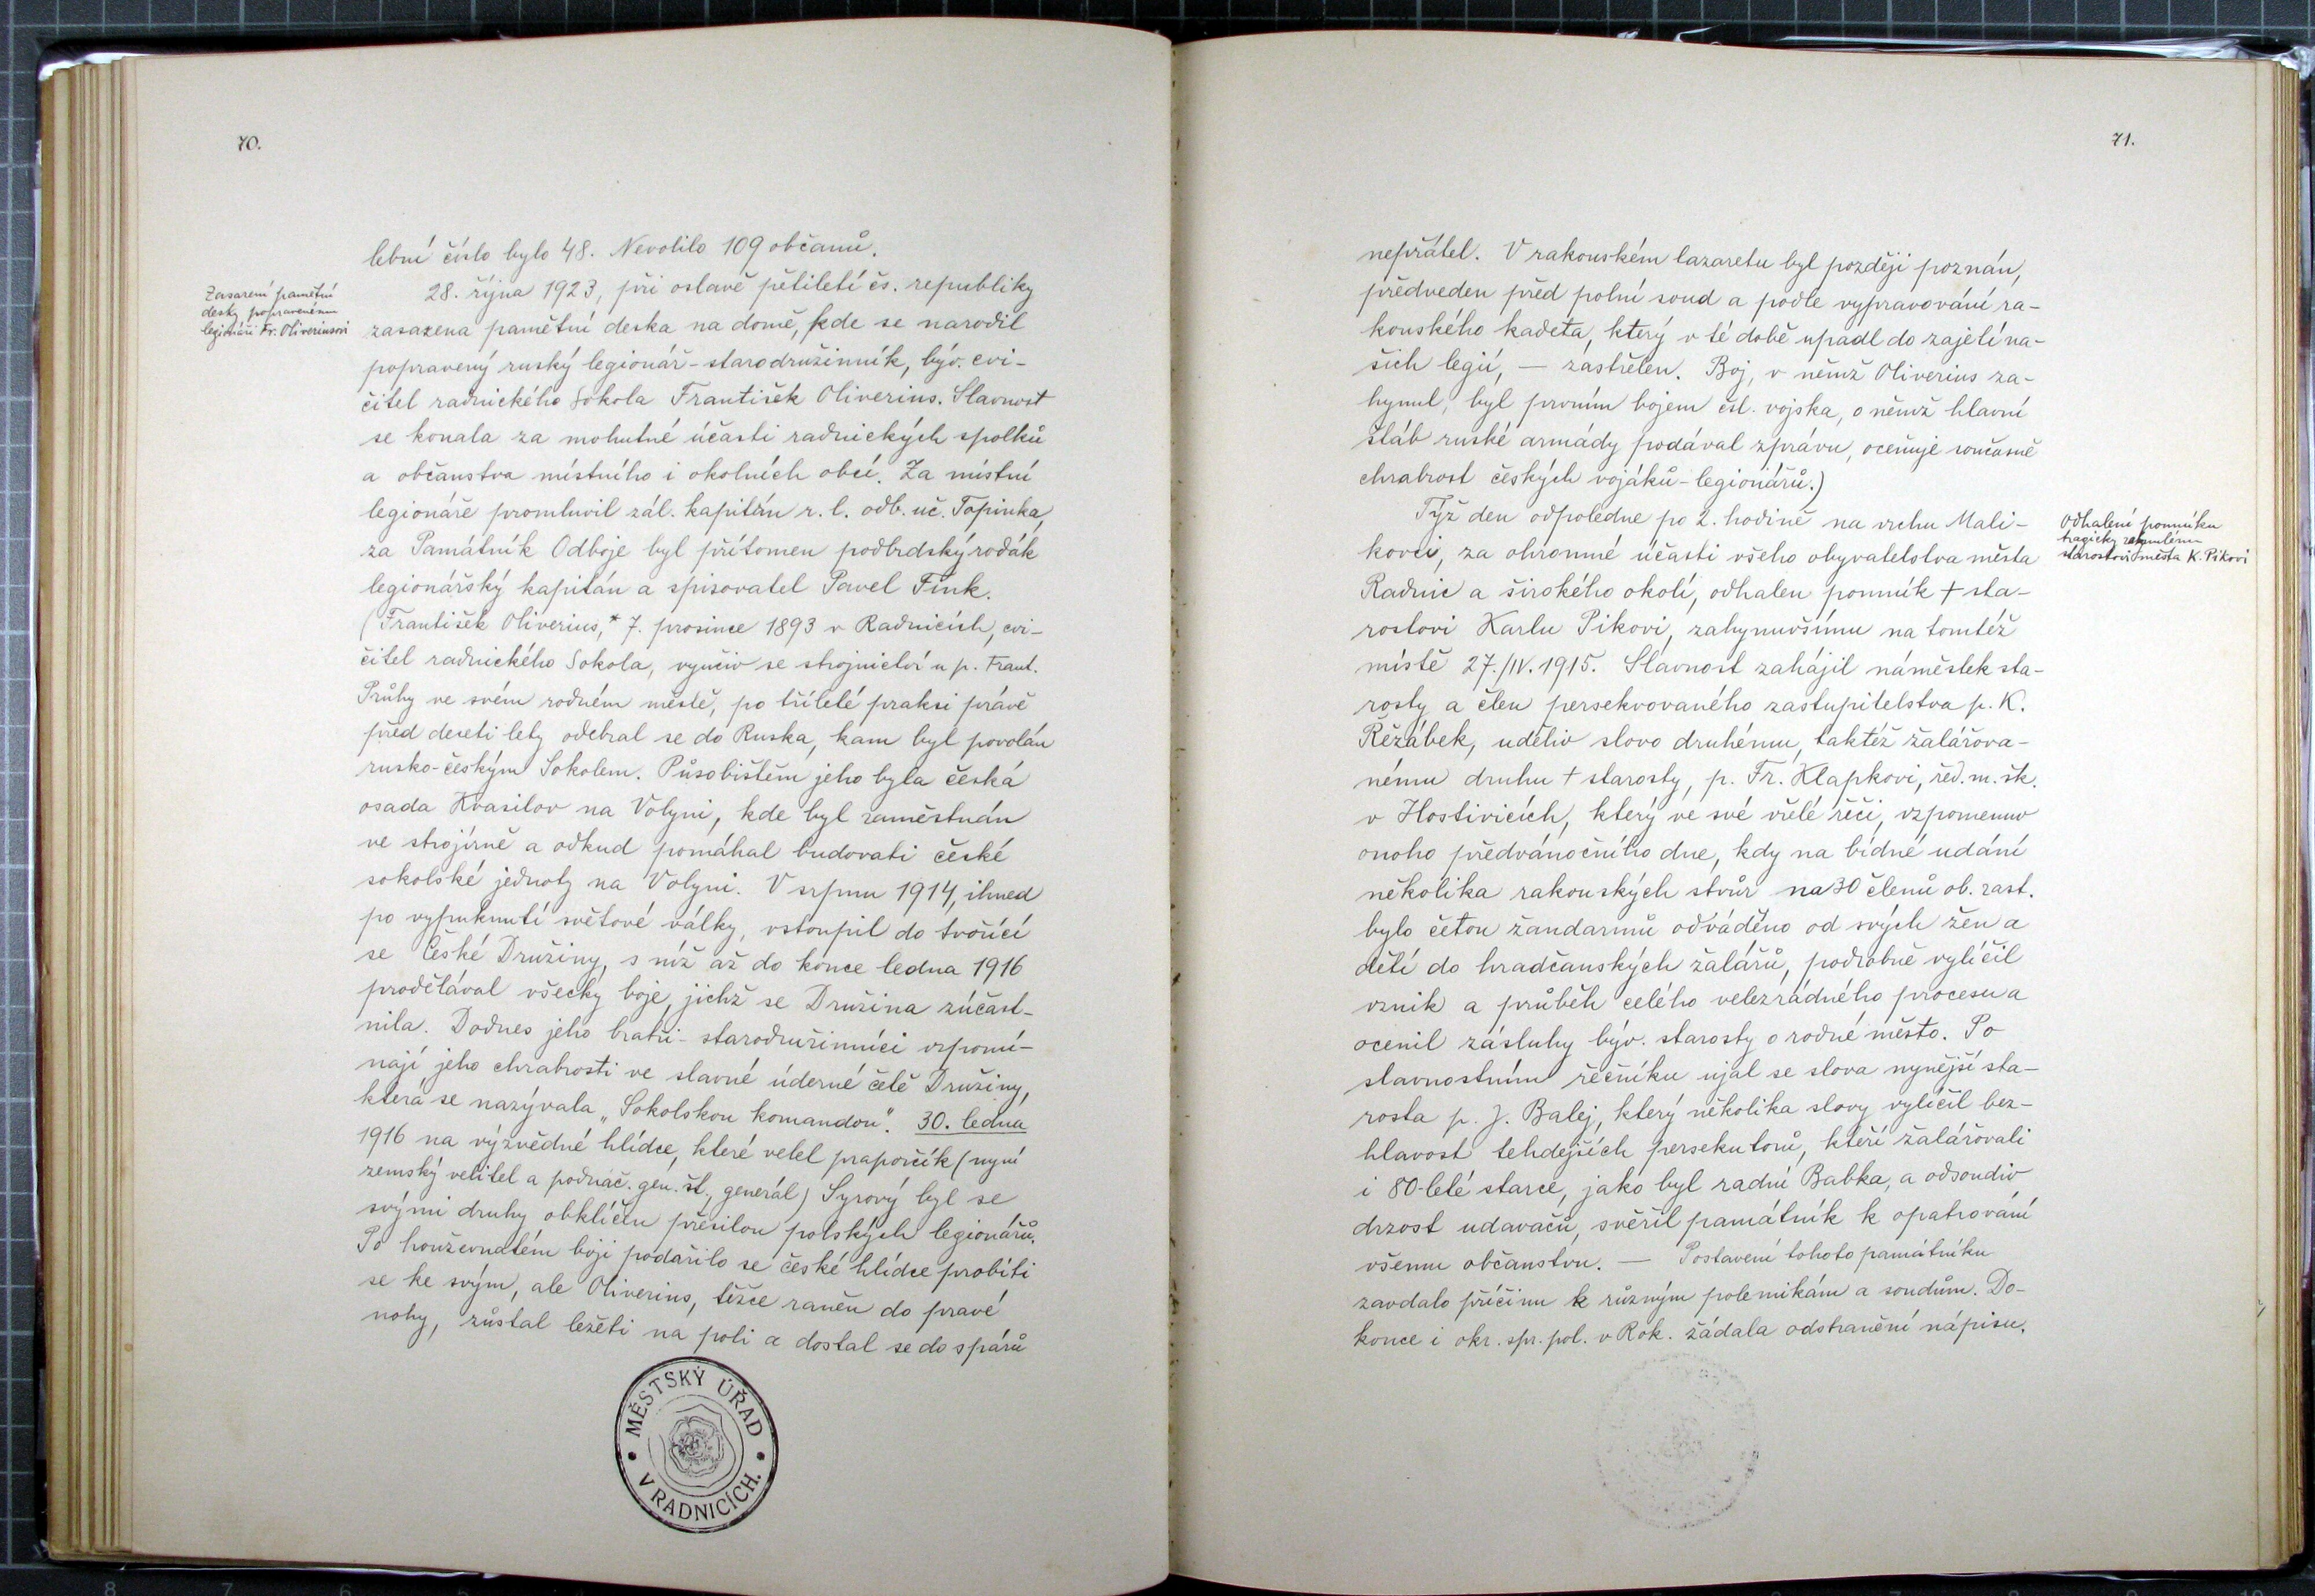 70.
lební číslo bylo 48. Nevolilo 109 občanů.
Zasazení pamětní
desky popravenému
legionáři Fr. Oliveriusovi
28. října 1923, při oslavě pětiletí čs. republiky
zasazena pamětní deska na domě, kde se narodil
popravený ruský legionář - starodružinník, býv. cvi-
čitel radnického Sokola František Oliverius. Slavnost
se konala za mohutné účasti radnických spolků
a občanstva místního i okolních obcí. Za místní
legionáře promluvil zál. kapitán r. l. odb. uč. Topinka,
za Památník Odboje byl přítomen podbrdský rodák
legionářský kapitán a spisovatel Pavel Fink.
(František Oliverius, * 7. prosince 1893 v Radnicích, cvi-
čitel radnického Sokola, vyučiv se strojnictví u p. Frant.
Průhy ve svém rodném městě, po tříleté praksi právě
před deseti lety odebral se do Ruska, kam byl povolán
rusko-českým Sokolem. Působištěm jeho byla česká
osada Kvasilov na Volyni, kde byl zaměstnán
ve strojírně a odkud pomáhal budovati české
sokolské jednoty na Volyni. V srpnu 1914, ihned
po vypuknutí světové války, vstoupil do tvořící
se České Družiny, s níž až do konce ledna 1916
prodělával všecky boje, jichž se Družina zúčast-
nila. Dodnes jeho bratři - starodružinníci vzpomí-
nají jeho chrabrosti ve slavné úderné četě Družiny,
která se nazývala „Sokolskou komandou". 30. ledna
1916 na výzvědné hlídce, které velel praporčík (nyní
zemský velitel a podnáč. gen. št., generál) Syrový byl se
svými druhy obklíčen přesilou polských legionářů.
Po houževnatém boji podařilo se české hlídce probíti
se ke svým, ale Oliverius, těžce raněn do pravé
nohy, zůstal ležeti na poli a dostal se do spárů
MĚSTSKÝ ÚŘAD
V RADNICÍCH.
71.
nepřátel. V rakouském lazaretu byl později poznán,
předveden před polní soud a podle vypravování ra-
kouského kadeta, který v té době upadl do zajetí na-
šich legií, — zastřelen. Boj, v němž Oliverius za-
hynul, byl prvním bojem čsl. vojska, o němž hlavní
štáb ruské armády podával zprávu, oceňuje současně
chrabrost českých vojáků - legionářů.)
Týž den odpoledne po 2. hodině na vrchu Mali-
kovci, za ohromné účasti všeho obyvatelstva města
Radnic a širokého okolí, odhalen pomník † sta-
rostovi Karlu Pikovi, zahynuvšímu na tomtéž
místě 27./IV. 1915. Slavnost zahájil náměstek sta-
rosty a člen persekvovaného zastupitelstva p. K.
Řežábek, uděliv slovo druhému, taktéž žalářova-
nému druhu † starosty, p. Fr. Klapkovi, řed. m. šk.
v Hostivicích, který ve své vřelé řeči, vzpomenuv
onoho předvánočního dne, kdy na bídné udání
několika rakouských stvůr na 30 členů ob. zast.
bylo četou žandarmů odváděno od svých žen a
dětí do hradčanských žalářů, podrobně vylíčil
vznik a průběh celého velezrádného procesu a
ocenil zásluhy býv. starosty o rodné město. Po
slavnostním řečníku ujal se slova nynější sta-
rosta p. J. Balej, který několika slovy vylíčil bez-
hlavost tehdejších persekutorů, kteří žalářovali
i 80-leté starce, jako byl radní Babka, a odsoudiv
drzost udavačů, svěřil památník k opatrování
všemu občanstvu. — Postavení tohoto památníku
zavdalo příčinu k různým polemikám a soudům. Do-
konce i okr. spr. pol. v Rok. žádala odstranění nápisu.
Odhalení pomníku
tragicky zahynulému
starostovi města K. Pikovi